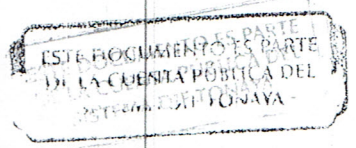 ESTE DOCUMENTO ES PARTE
DE LA CUENTA PÚBLICA DEL
DE TONAYA